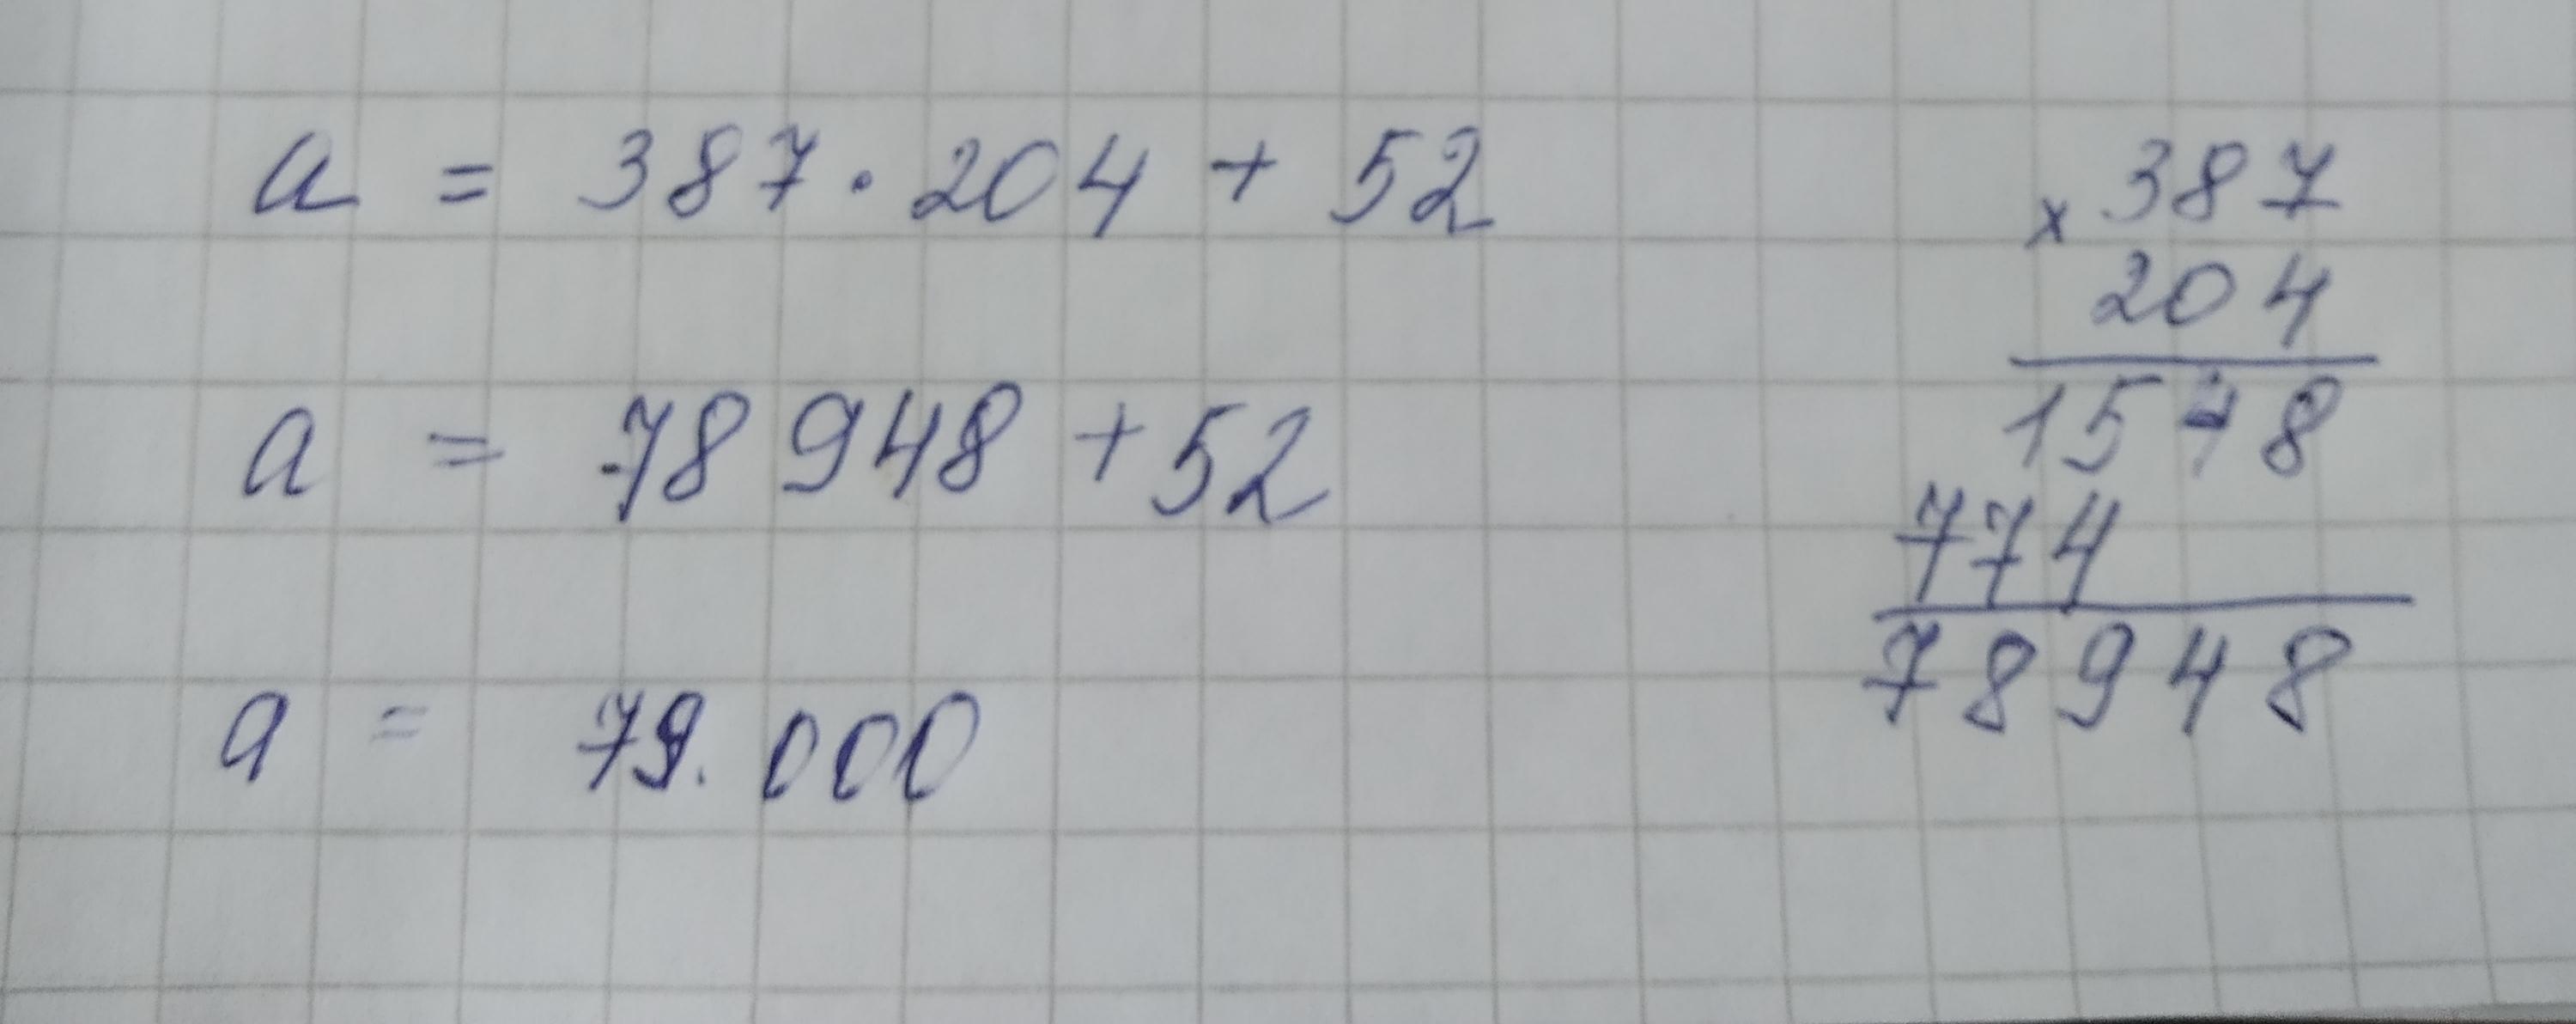 a = 387 · 204 + 52
a = 78 948 + 52
a = 79.000
× 387
204
1548
774
78948